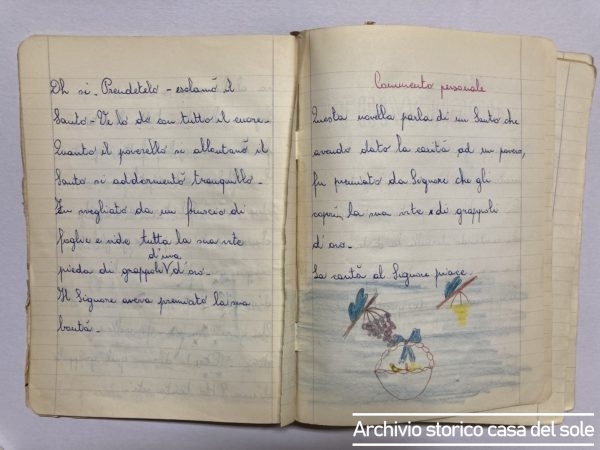 Oh si - Prendetelo - esclamò il
Santo - Ve lo do con tutto il cuore -
Quanto il poverello si allontanò il
Santo si addormentò tranquillo -
Fu svegliato da un fruscio di
foglie e vide tutta la sua vite
pieda di grappoli d'uva d'oro -
Il Signore aveva premiato la sua
bontà -
Commento personale
Questa novella parla di un Santo che
avendo dato la carità ad un povero,
fu premiato da Signore che gli
coprì la sua vite di grappoli
d'oro -
La carità al Signore piace.
Archivio storico casa del sole